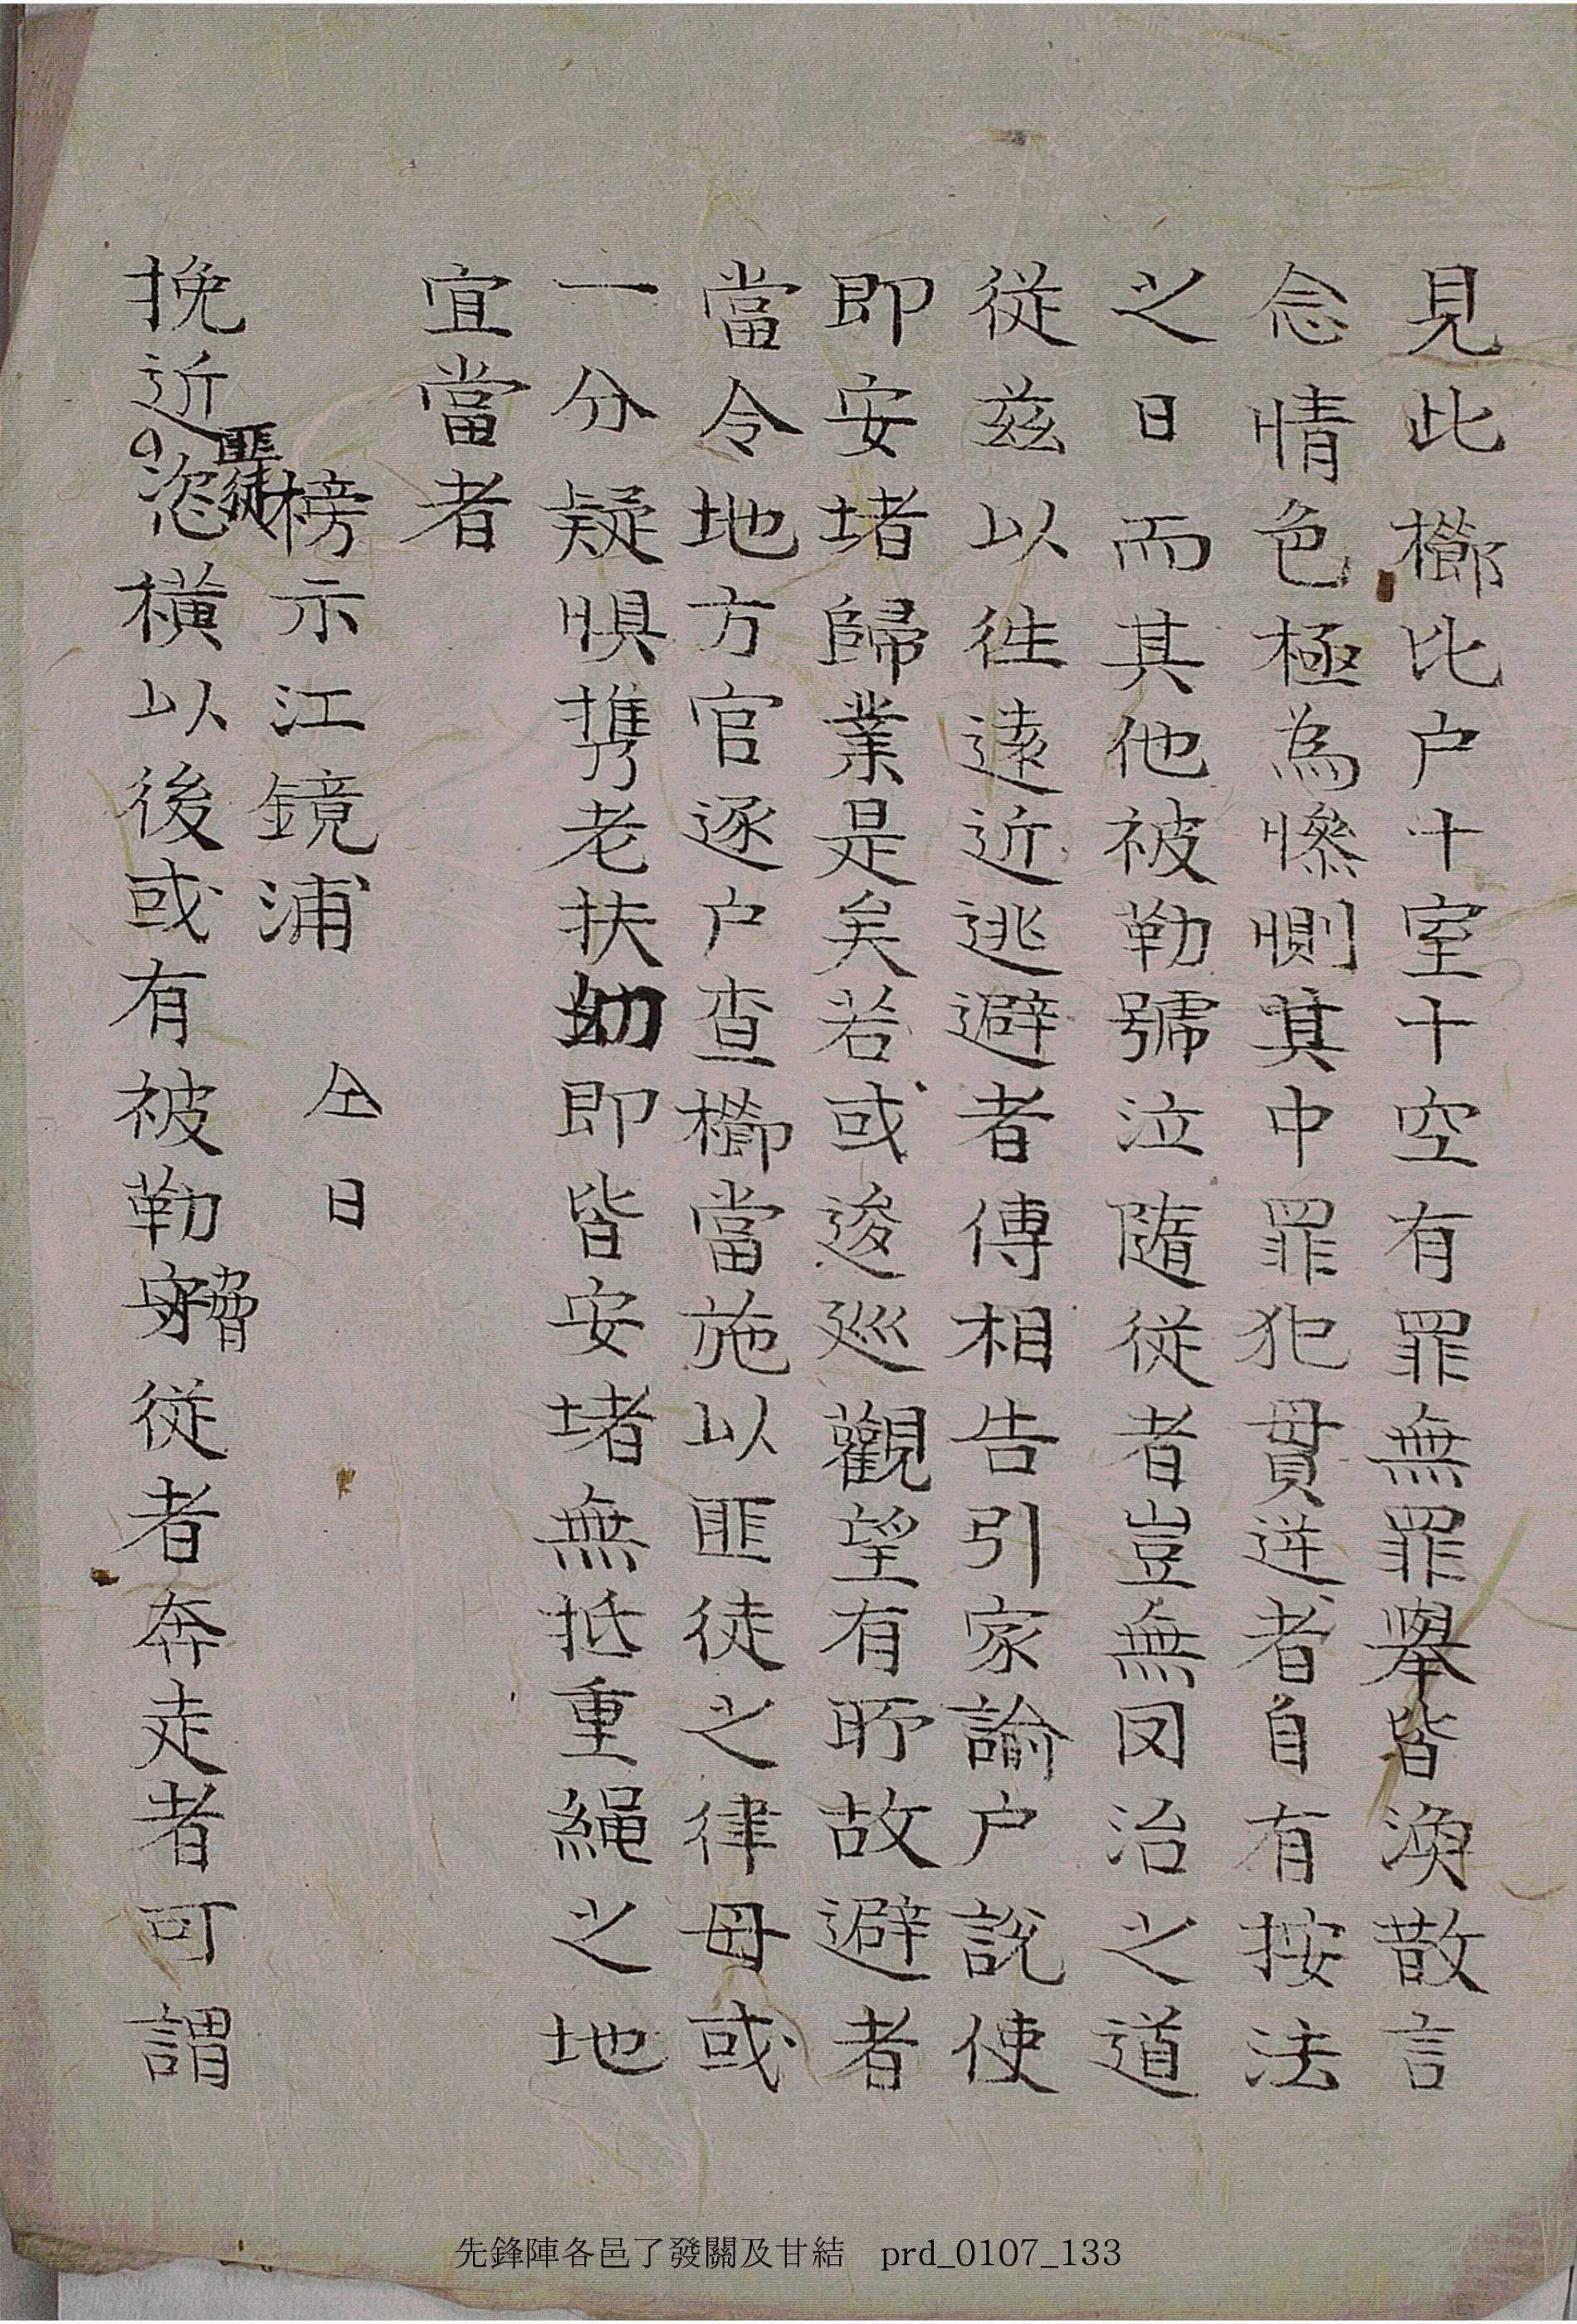 見此櫛比户十室十空有罪無罪舉皆渙散言
念情色極為慘惻其中罪犯貫逆者自有按法
之日而其他被勒號泣隨從者豈無罔治之道
從玆以徃遠近逃避者傳相告引家諭户說使
即安堵歸業是矣若或逡巡觀望有所故避者
當令地方官逐户查櫛當施以匪徒之律毋或
一分疑惧携老扶幼即皆安堵無抵重繩之地
宜當者
榜示江鏡浦 仝日
挽近匪徒恣橫以後或有被勒脅從者奔走者可謂
先鋒陣各邑了發關及甘結 prd_0107_133